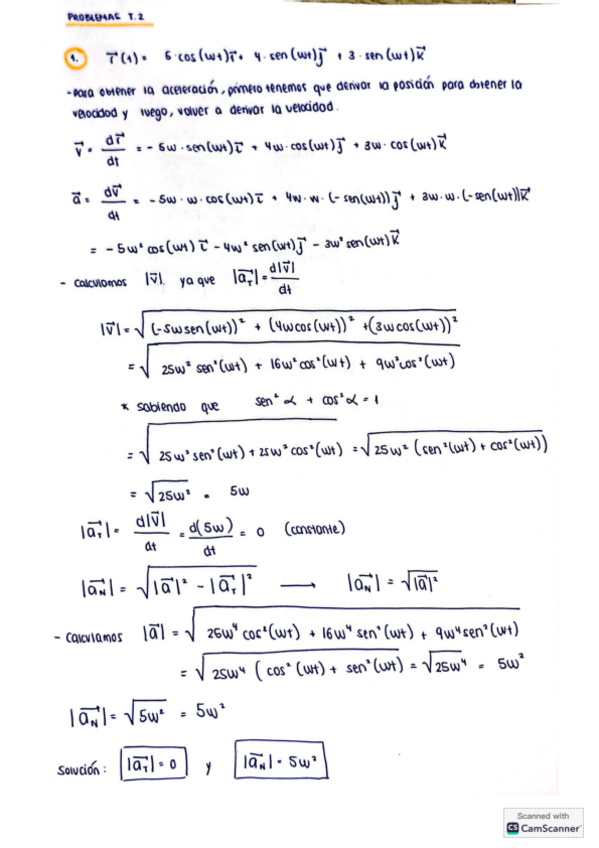 PROBLEMAS T.2
1. r⃗(t) = 5·cos(wt)i⃗ + 4·sen(wt)j⃗ + 3·sen(wt)k⃗
-Para obtener la aceleración, primero tenemos que derivar la posición para obtener la
velocidad y luego, volver a derivar la velocidad.
v⃗ = dr⃗/dt = -5w·sen(wt)i⃗ + 4w·cos(wt)j⃗ + 3w·cos(wt)k⃗
a⃗ = dv⃗/dt = -5w·w·cos(wt)i⃗ + 4w·w·(-sen(wt))j⃗ + 3w·w·(-sen(wt))k⃗
= -5w² cos(wt) i⃗ - 4w² sen(wt)j⃗ - 3w² sen(wt)k⃗
- Calculamos |v⃗|, ya que |a⃗_T| = d|v⃗|/dt
|v⃗| = √((-5wsen(wt))² + (4wcos(wt))² + (3wcos(wt))²)
= √(25w² sen²(wt) + 16w²cos²(wt) + 9w²cos²(wt))
* Sabiendo que sen² α + cos² α = 1
= √(25w²sen²(wt) + 25w²cos²(wt)) = √(25w² (sen²(wt) + cos²(wt)))
= √25w² = 5w
|a⃗_T| = d|v⃗|/dt = d(5w)/dt = 0 (constante)
|a⃗_N| = √(|a⃗|² - |a⃗_T|²) ⟶ |a⃗_N| = √|a⃗|²
- Calculamos |a⃗| = √(25w⁴ cos²(wt) + 16w⁴ sen²(wt) + 9w⁴sen²(wt))
= √(25w⁴ (cos²(wt) + sen²(wt)) = √25w⁴ = 5w²
|a⃗_N| = √5w² = 5w²
Solución: |a⃗_T| = 0 y |a⃗_N| = 5w²
Scanned with
CS CamScanner